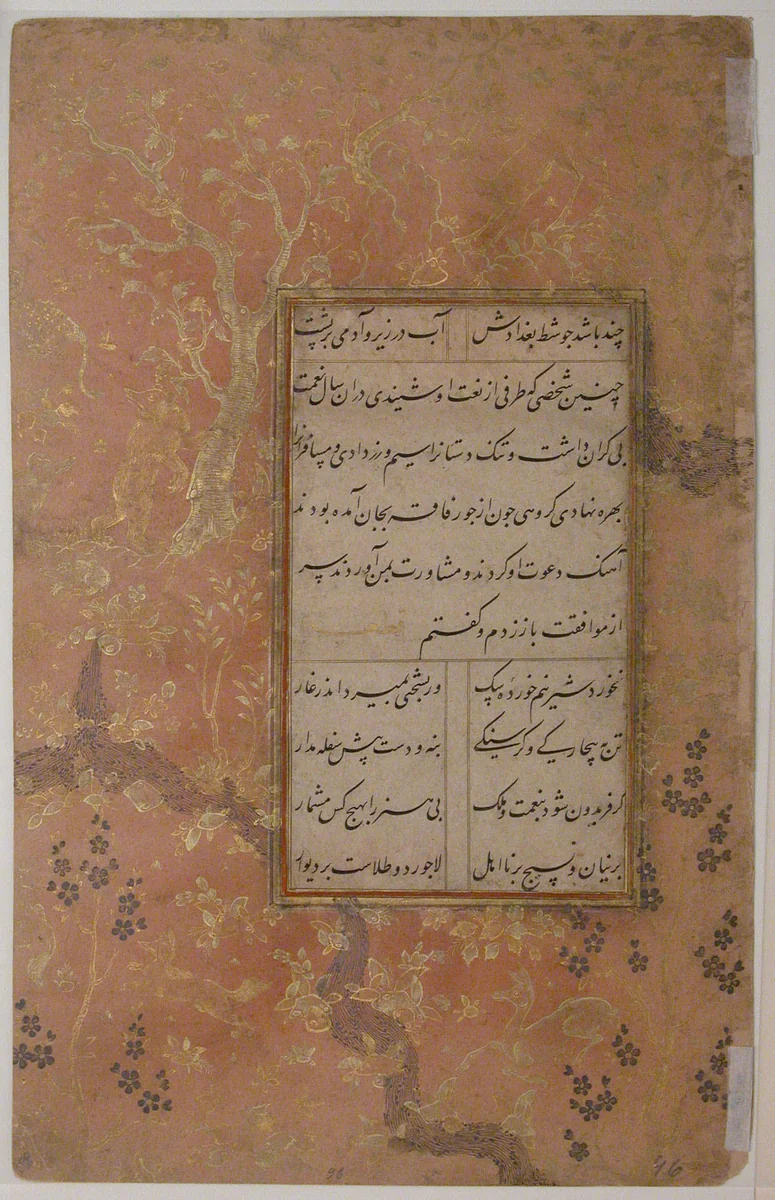 چند باشد جو شط بغدادش آب در زیر و آدمی بر پشت
چنین شخصی که طرفی از نعت او شنیدی در ان سال نعمت
بی کران داشت و تنک دستانرا سیم و زر دادی و مسافرانرا
بهره نهادی کروهی جون از جور فاقه بجان آمده بودند
آهنک دعوت او کردند و مشاورت بمن آوردند سر
از موافقت باز زدم و کفتم
نخورد شیر نیم خورده سک ور بسختی بمیرد اندر غار
تن به بیچارکی و کرسنکی بنه و دست پیش سفله مدار
کر فریدون شود بنعمت و ملک بی هنر را بهیچ کس مشمار
برنیان و نسیج بر نااهل لاجورد و طلاست بر دیوار
96
46